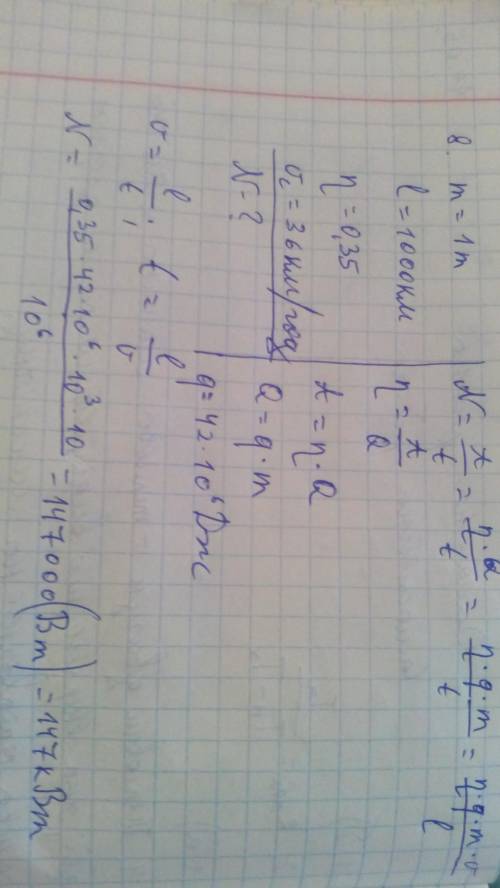 8. m = 1т
l = 1000 км
η = 0,35
v_c = 36 км/год
N - ?
N = A/t = η·Q/t = η·q·m/t = η·q·m·v/l
η = A/Q
A = η·Q
Q = q·m
q = 42·10⁶ Дж
v = l/t; t = l/v
N = 0,35·42·10⁶·10³·10/10⁶ = 147000 (Вт) = 147 кВт